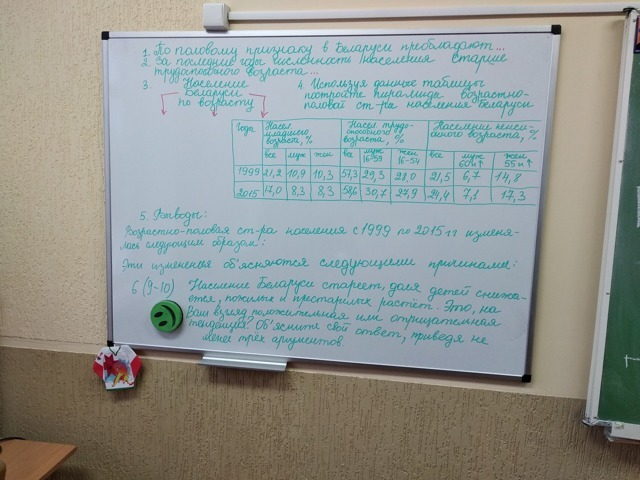 1. По половому признаку в Беларуси преобладают...
2. За последние годы численность населения старше
трудоспособного возраста...
3. Население
Беларуси
по возрасту
4. Используя данные таблицы
постройте пирамиды возрастно-
половой ст-ры населения Беларуси
Года Насел младшего возраста, % Насел трудо-способного возраста, % Население пенси-онного возраста, %
все муж жен все муж 16-59 жен 16-54 все муж 60 и ↑ жен 55 и ↑
1999 21,2 10,9 10,3 57,3 29,3 28,0 21,5 6,7 14,8
2015 17,0 8,3 8,3 58,6 30,7 27,9 24,4 7,1 17,3
5. Выводы:
Возрастно-половая ст-ра населения с 1999 по 2015 гг изменя-
лась следующим образом:
Эти изменения об'ясняются следующими причинами:
6 (9-10) Население Беларуси стареет, доля детей снижа-
ется, пожилых и престарелых растёт. Это, на
Ваш взгляд положительная или отрицательная
тенденция? Об'ясните свой ответ, приведя не
менее трёх аргументов.